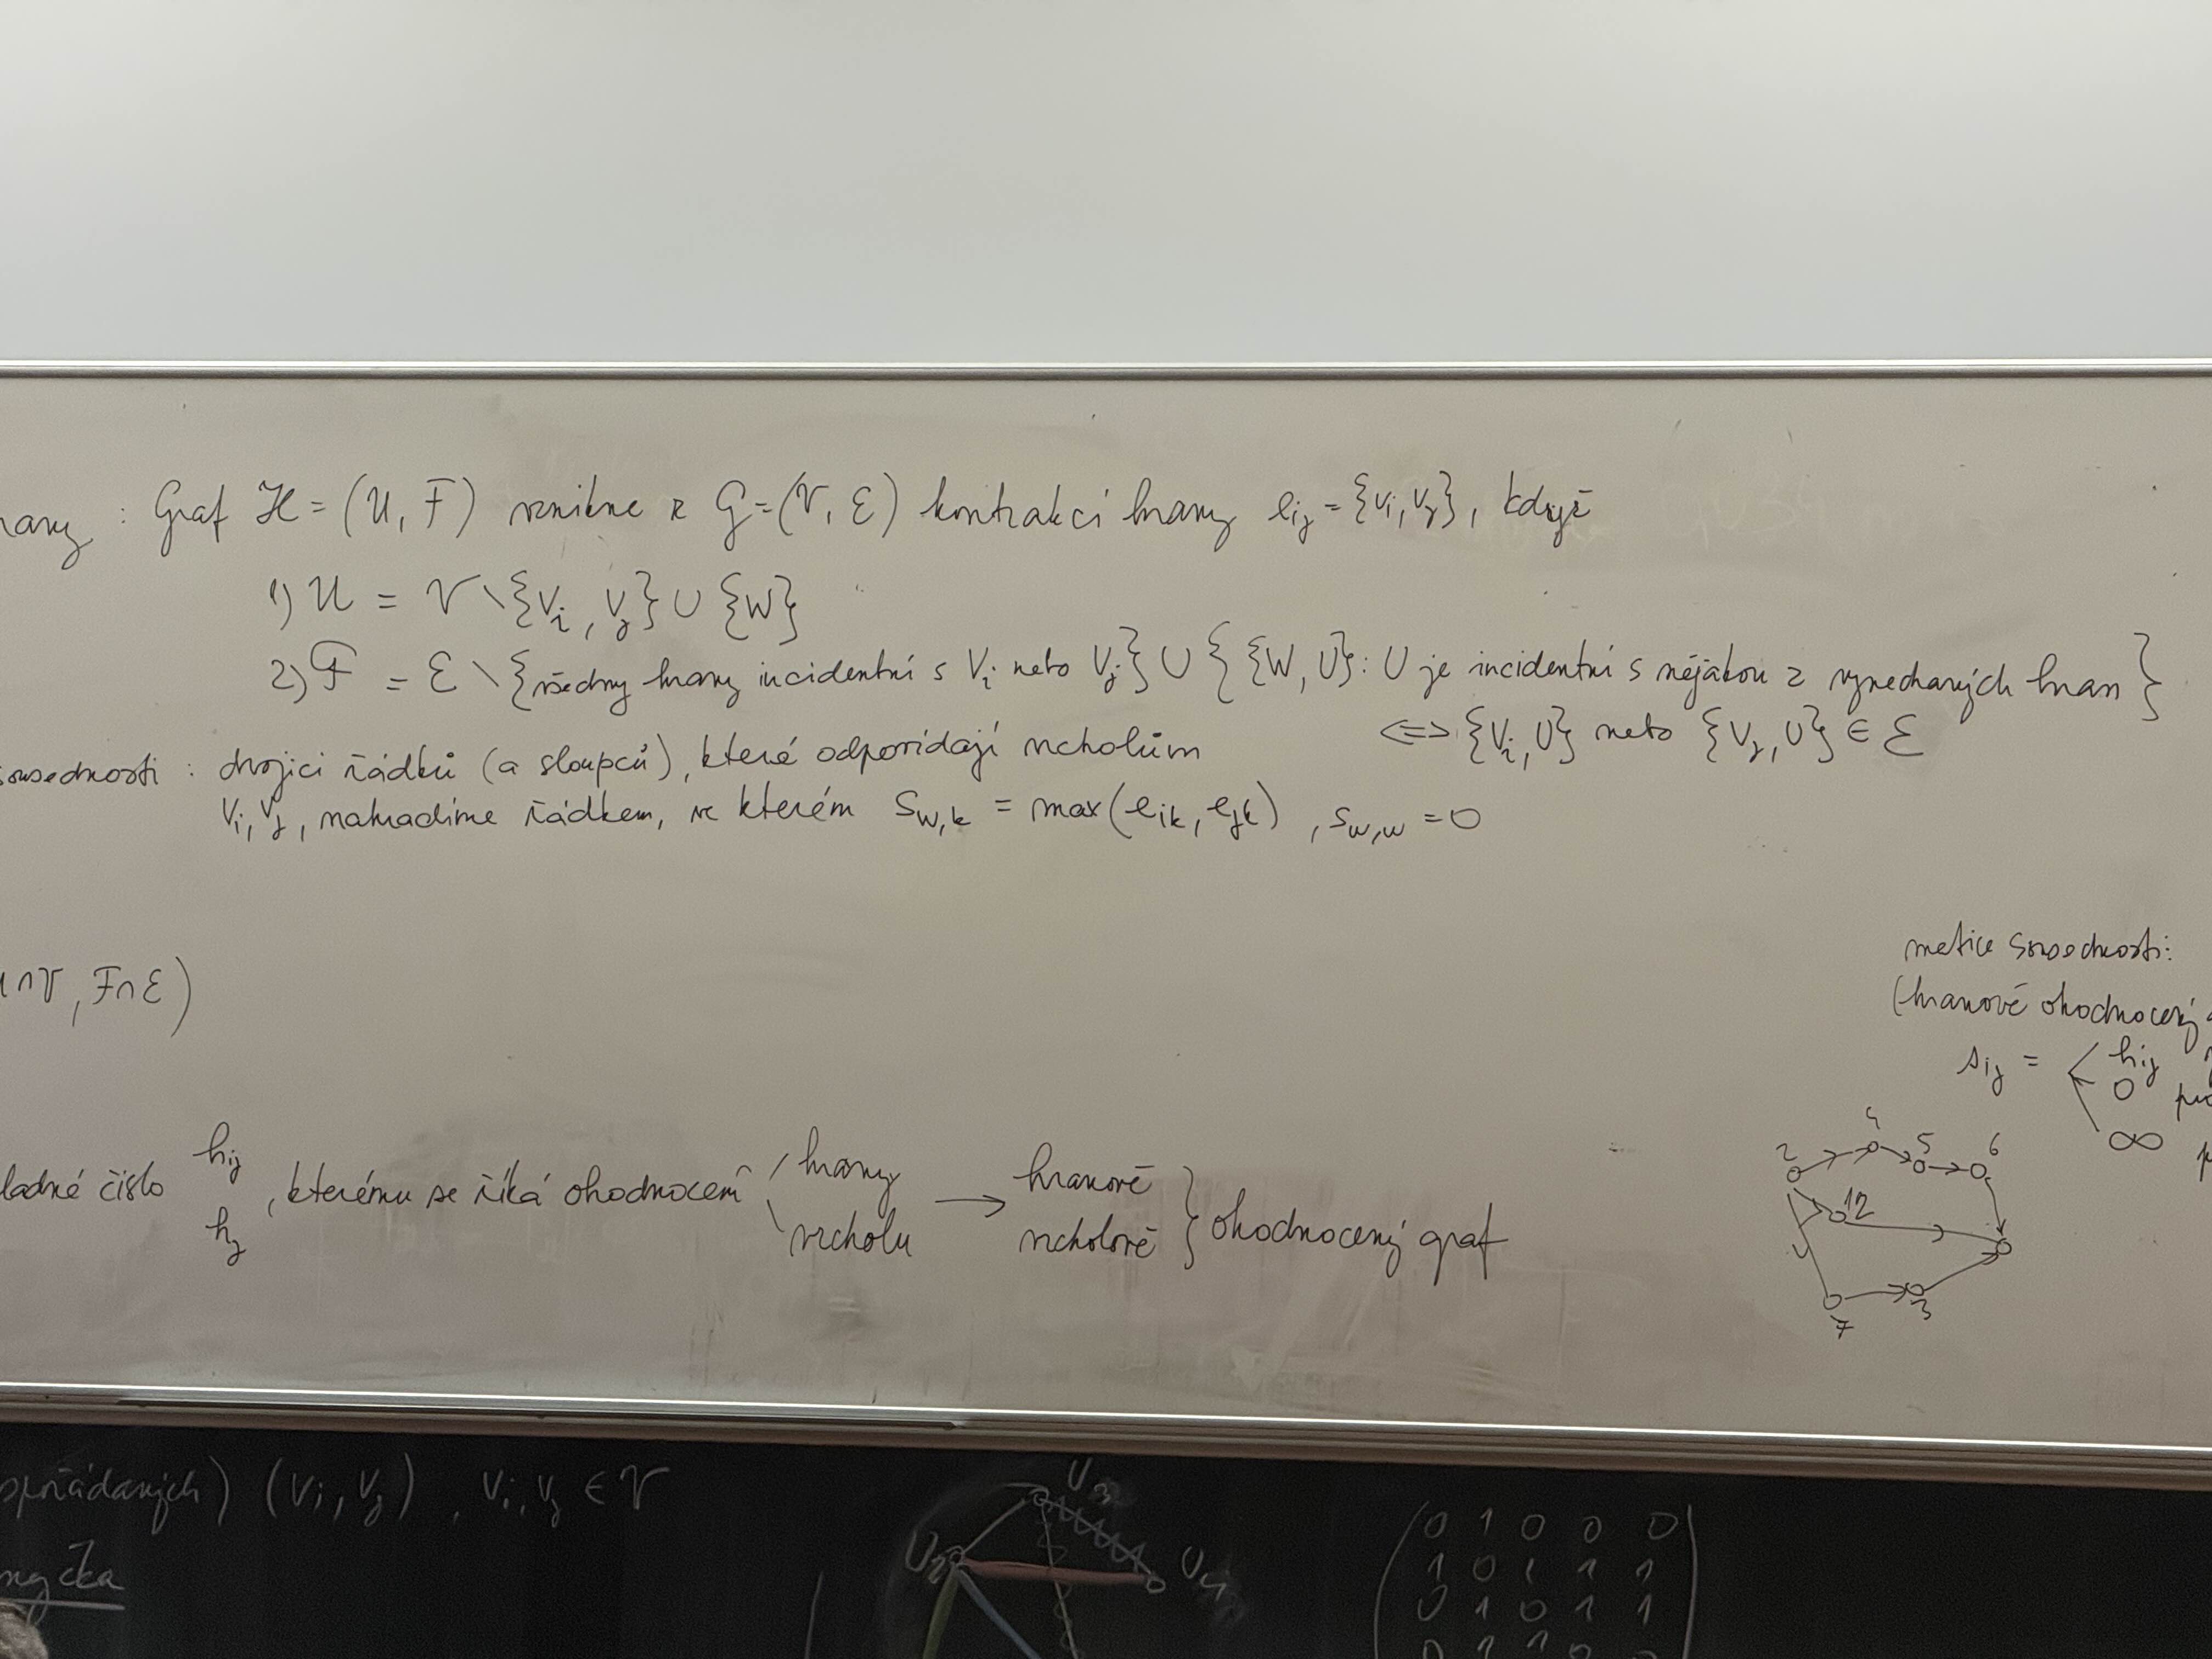 : Graf H = (U, F) vznikne z G = (V, E) kontrakcí hrany e_ij = {v_i, v_j}, když
1) U = V \ {V_i, V_j} ∪ {W}
2) F = E \ {všechny hrany incidentní s V_i nebo V_j} ∪ { {W, U} : U je incidentní s nějakou z vynechaných hran }
⟺ {V_i, U} nebo {V_j, U} ∈ E
sousednosti : dvojici řádků (a sloupců), které odpovídají vrcholům
V_i, V_j, nahradíme řádkem, ve kterém S_w,k = max(e_ik, e_jk), s_w,w = 0
∩ V, F ∩ E)
matice sousednosti:
(hranově ohodnocený
s_ij = < h_ij
0
∞
ladné číslo h_ij h_j, kterému se říká ohodnocení hrany vrcholu → hranově vrcholově } ohodnocený graf
2 4 5 6
12
7 3
(V_i, V_j), V_i, V_j ∈ V
U_3
U_2 U_4
0 1 0 0 0
1 0 1 1 1
0 1 0 1 1